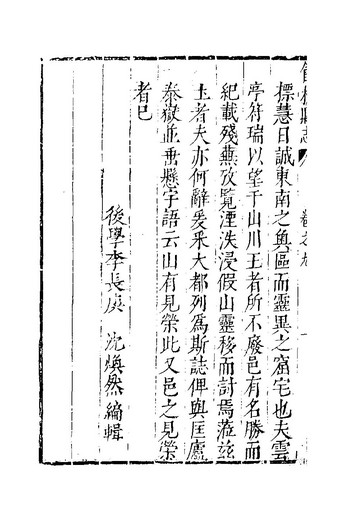 標慧日誠東南之奧區而靈異之窟宅也夫雲
亭符瑞以望于山川王者所不廢邑有名勝而
紀載殘蕪攷覧湮泆浸假山靈移而討焉蒞兹
土者夫亦何辭爰采大都列爲斯誌俾與匡廬
泰嶽並垂懸宇語云山有見榮此又邑之見榮
者已
後學李長庚 沈煥然編輯